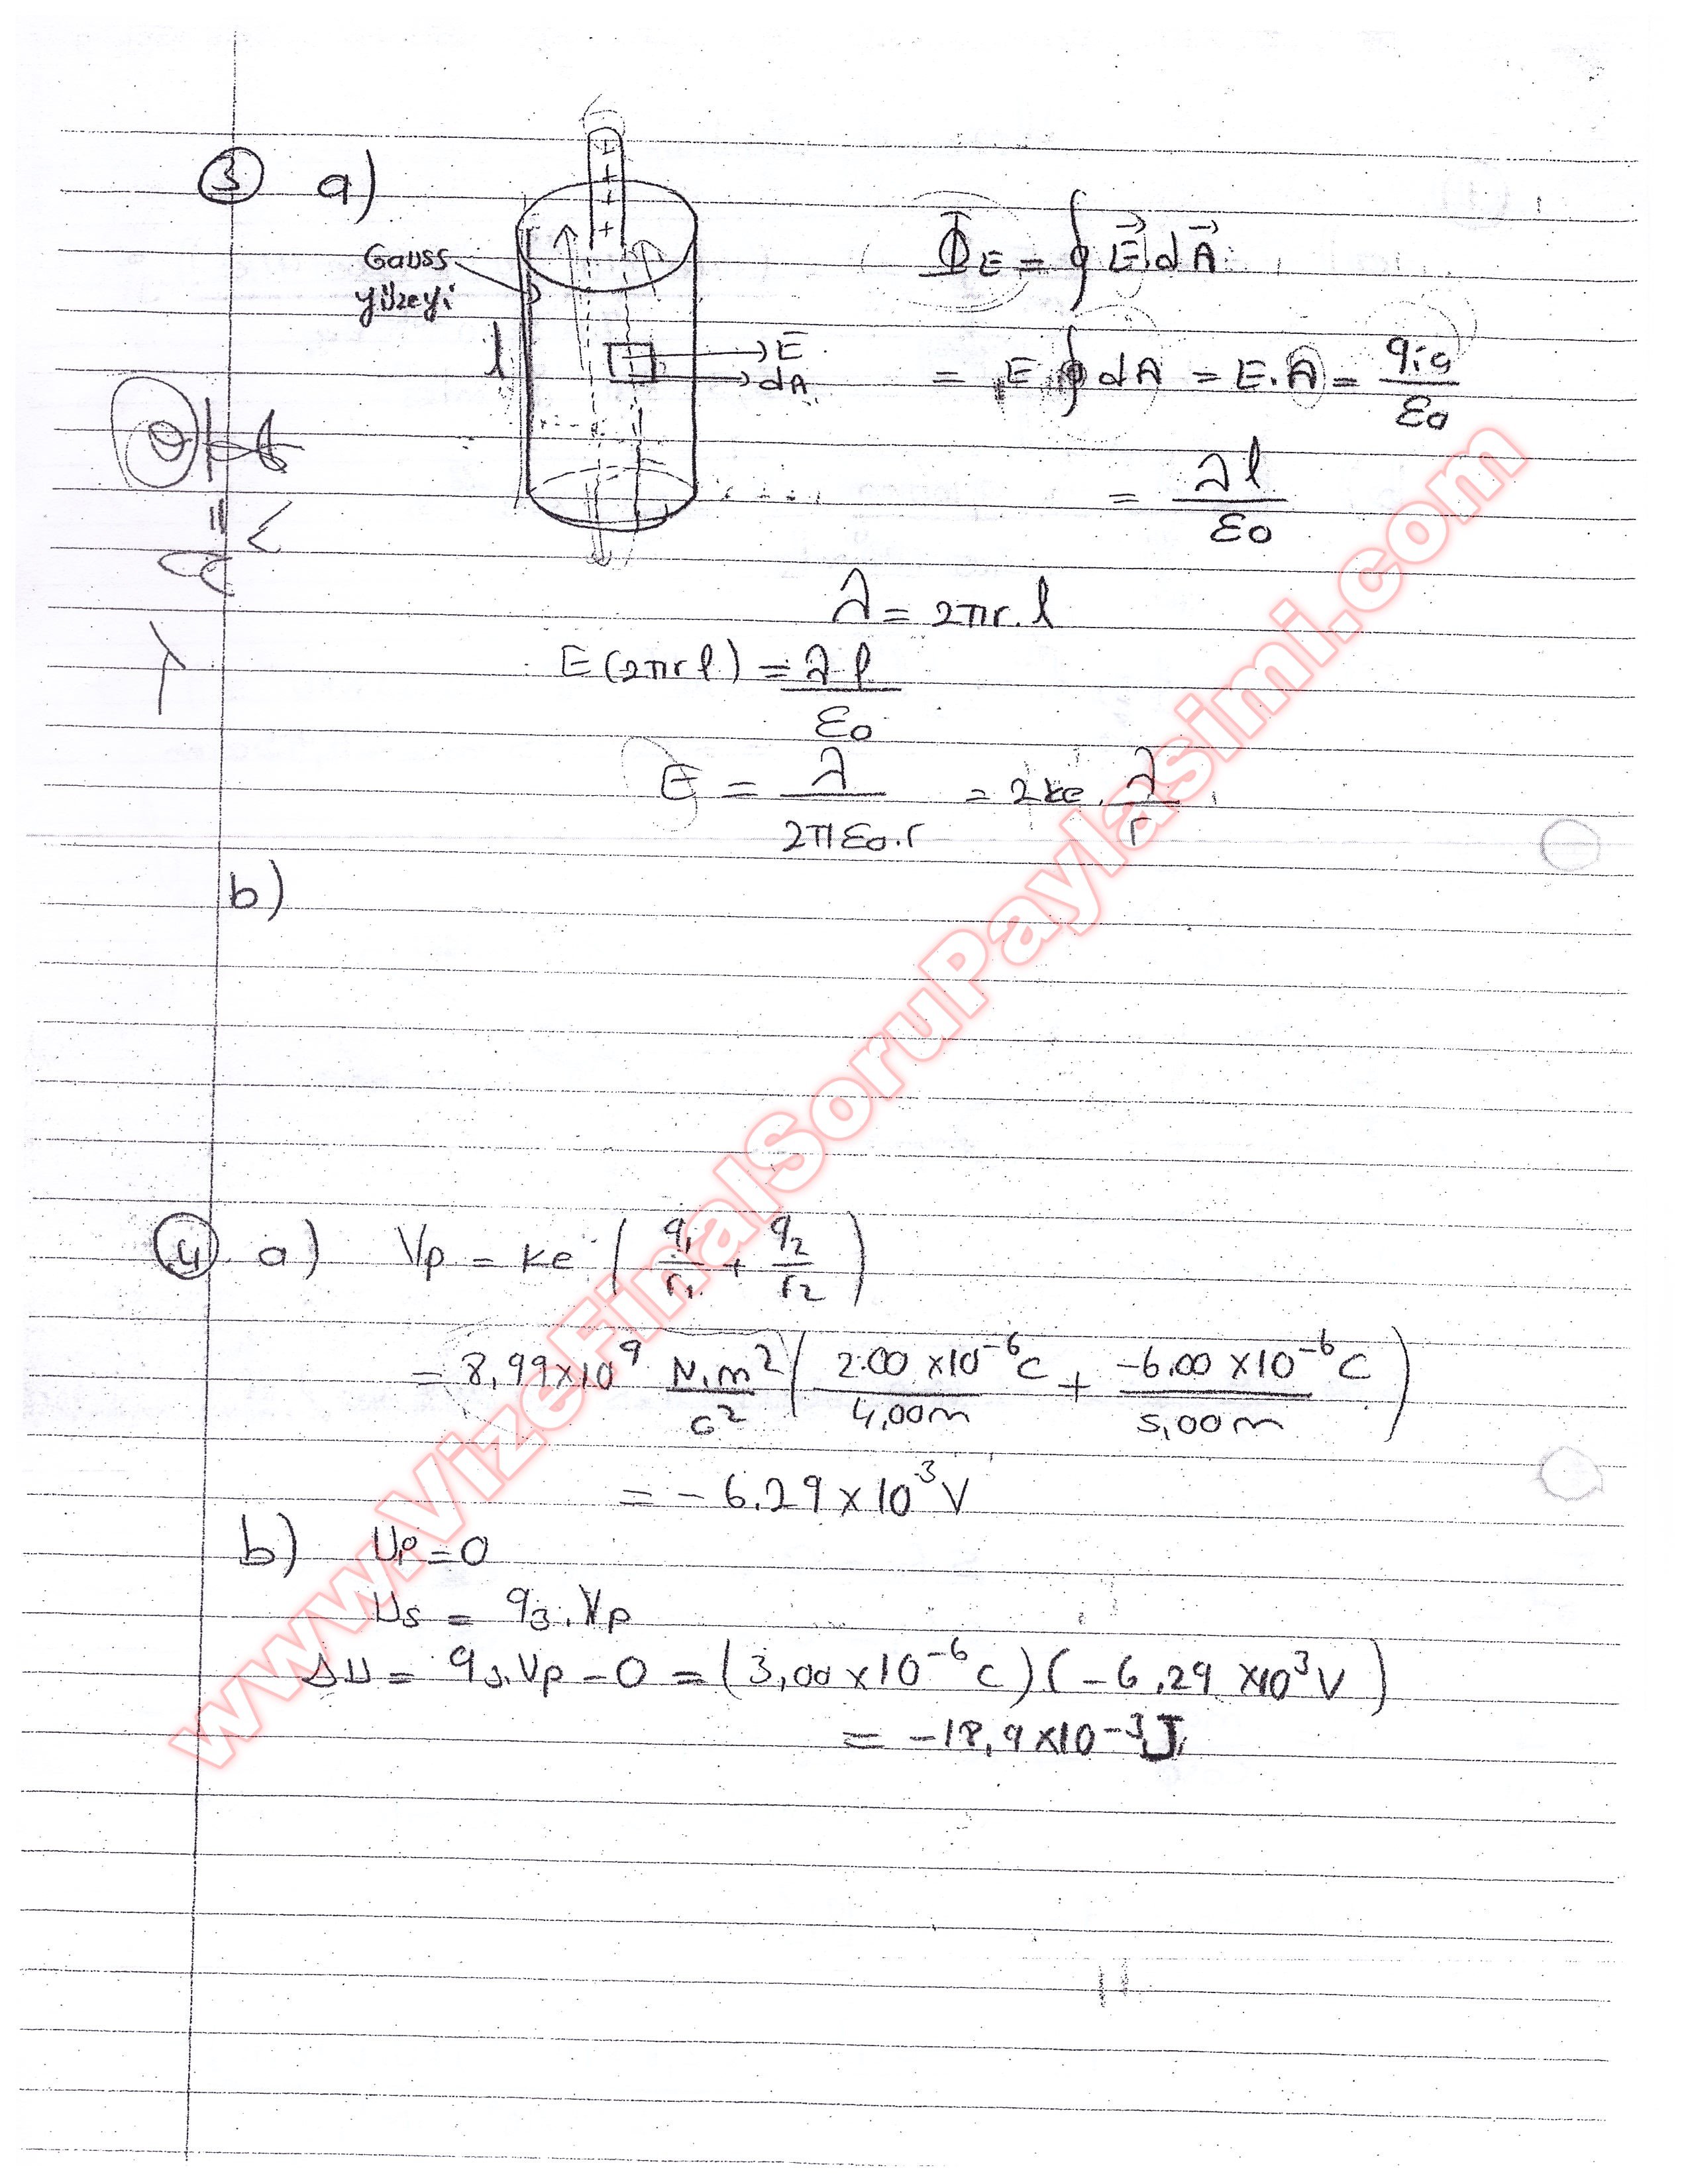 3 a)
+
+
+
+
Gauss
yüzeyi
l
E
dA
Φ_E = ∮ E⃗.dA⃗
= E ∮ dA = E.A = qiç/ε0
= λl/ε0
λ = 2πr.l
E(2πrl) = λl/ε0
E = λ/2πε0.r = 2ke.λ/r
b)
4 a) Vp = ke (q1/r1 + q2/r2)
= 8,99x10^9 N.m^2/c^2 (2.00 x10^-6 C/4,00m + -6.00 x10^-6 C/5,00m)
= - 6.29 x 10^3 V
b) Up=0
Us = q3.Vp
ΔU = q3.Vp - 0 = (3,00 x10^-6 C)(-6.29 x10^3 V)
= -18,9 x10^-3 J
www.VizeFinalSoruPaylasimi.com